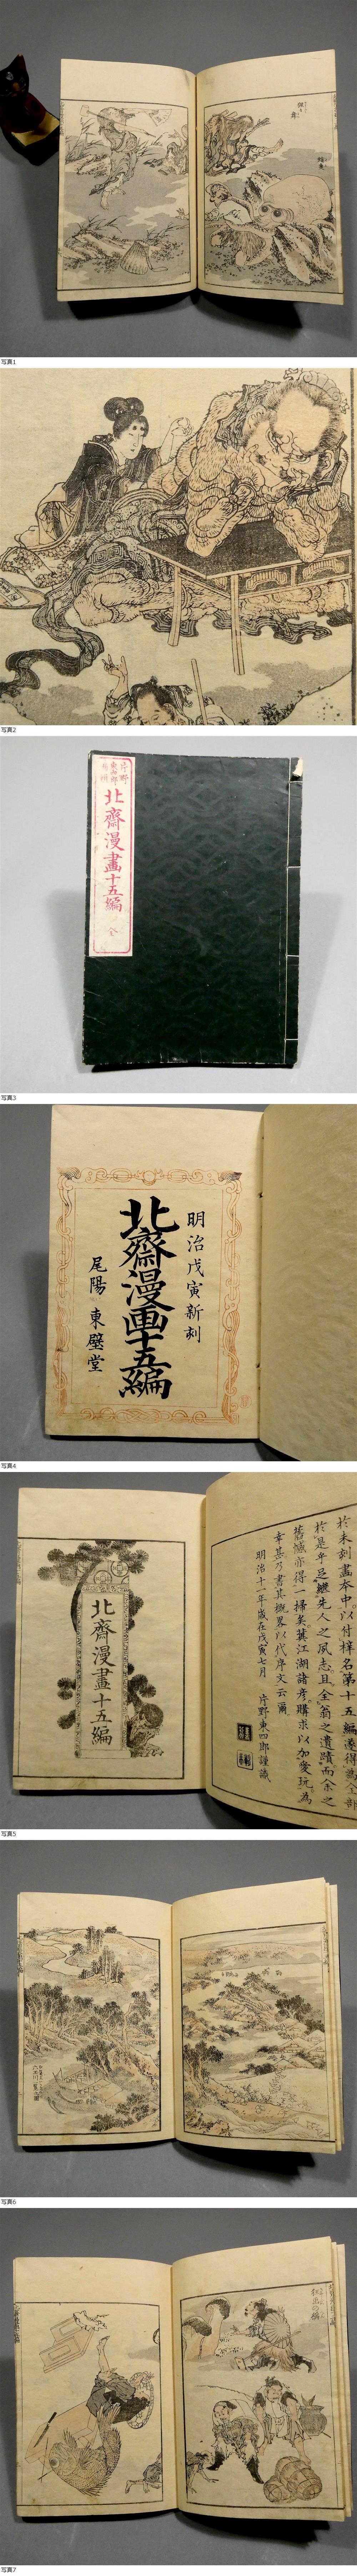 写真1
写真2
片野
東四郎
北齋漫畫十五編
全
写真3
明治戊寅新刻
北齋漫画十五編
尾陽 東壁堂
写真4
於未刻畫本中。以付梓名第十五編。遂得為全部
於是乎足繼先人之夙志。且全翁之遺蹟。而余之
舊憾亦得一掃矣。冀江湖諸彦。購求以加愛玩。為
幸甚。乃書其概畧。以代序文云爾
明治十一年歳在戊寅七月 片野東四郎謹識
北齋漫畫十五編
写真5
写真6
写真7